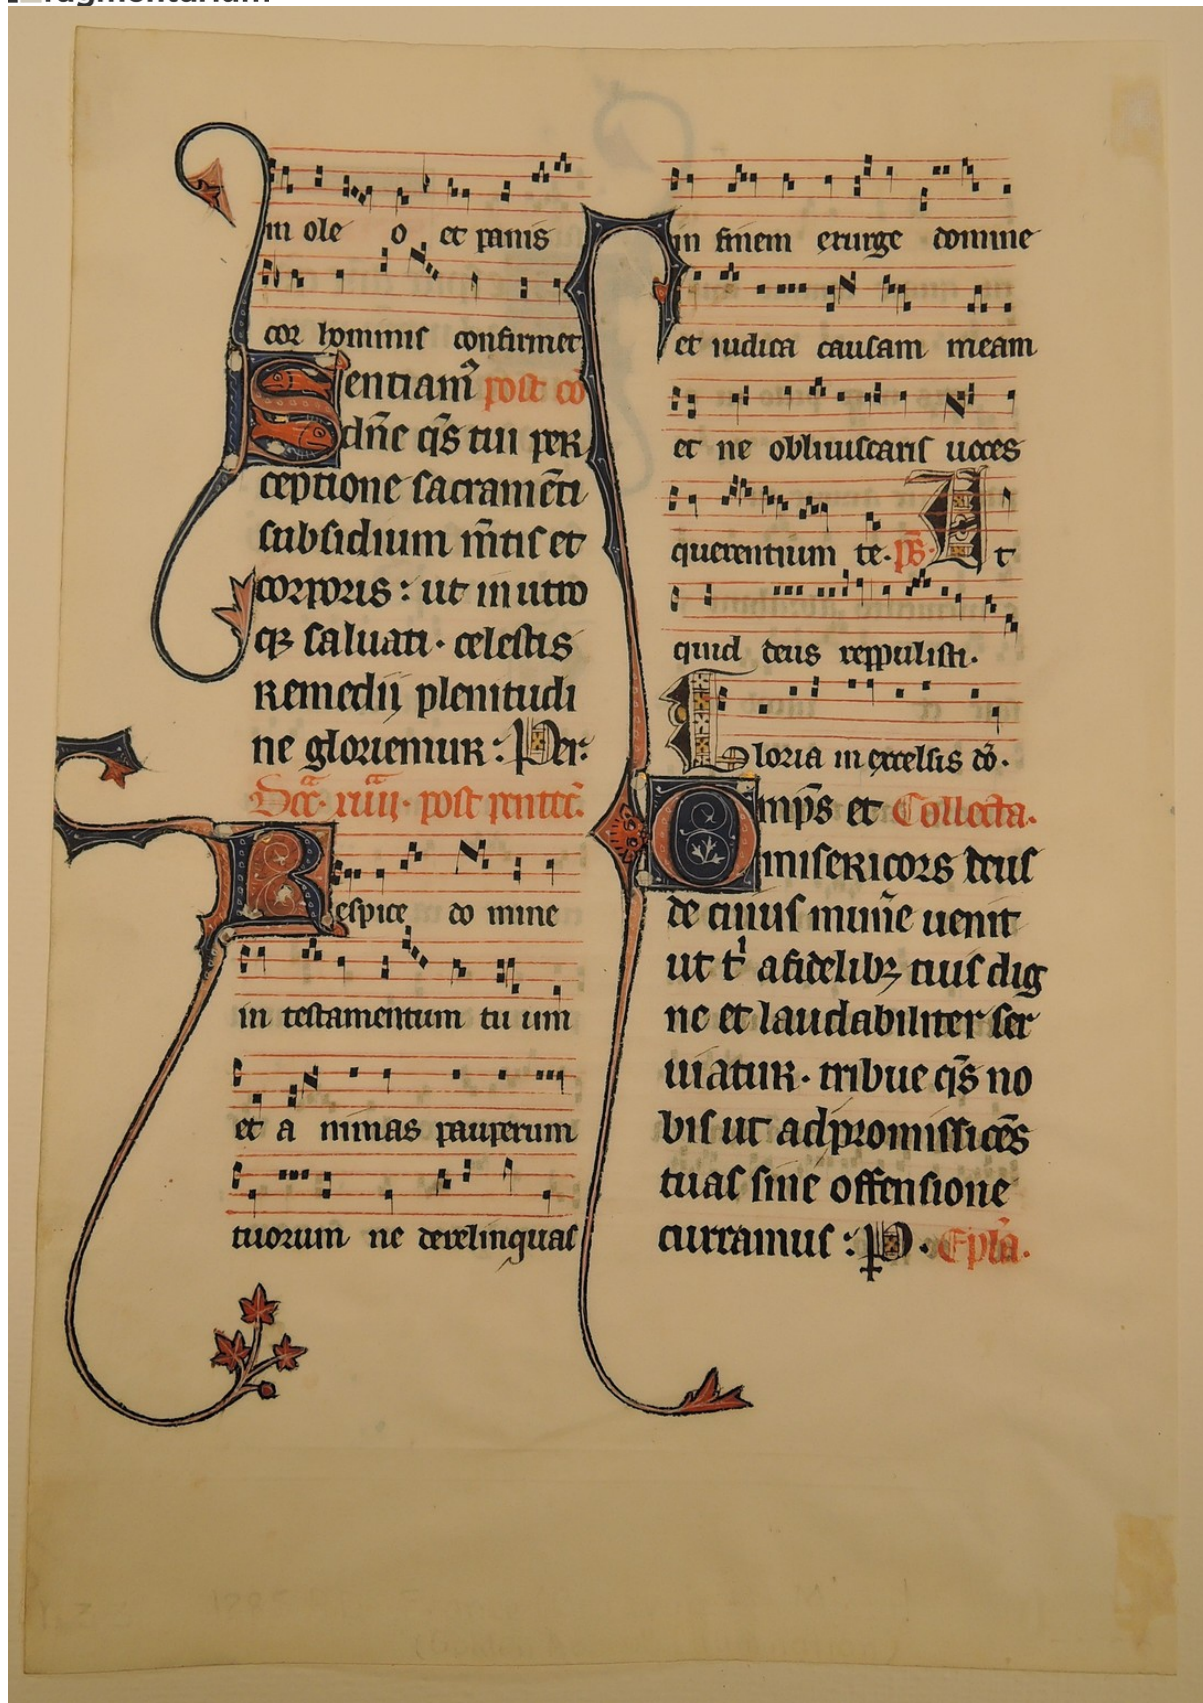 in ole o et panis
cor hominis confirmet
Sentiam᷒ post cō
dn̄e q̄s tui per
ceptione sacramēti
subsidium m̄tis et
corporis : ut in utro
qꝫ saluati · celestis
remedij plenitudi
ne gloriemur : Per:
post pentec̄.
Respice do mine
in testamentum tu um
et a nimas pauperum
tuorum ne derelinquas
in finem exurge domine
et iudica causam meam
et ne obliuiscaris uoces
querentium te. p̄s. Ut
quid deus reppulisti.
Gloria in excelsis dō.
Omp̄s et Collecta.
misericors deus
de cuius mun̄e uenit
ut t' a fidelibꝫ tuis dig
ne et laudabiliter ser
uiatur. tribue q̄s no
bis ut ad promissiōēs
tuas sine offensione
curramus : P. Epl̄a.